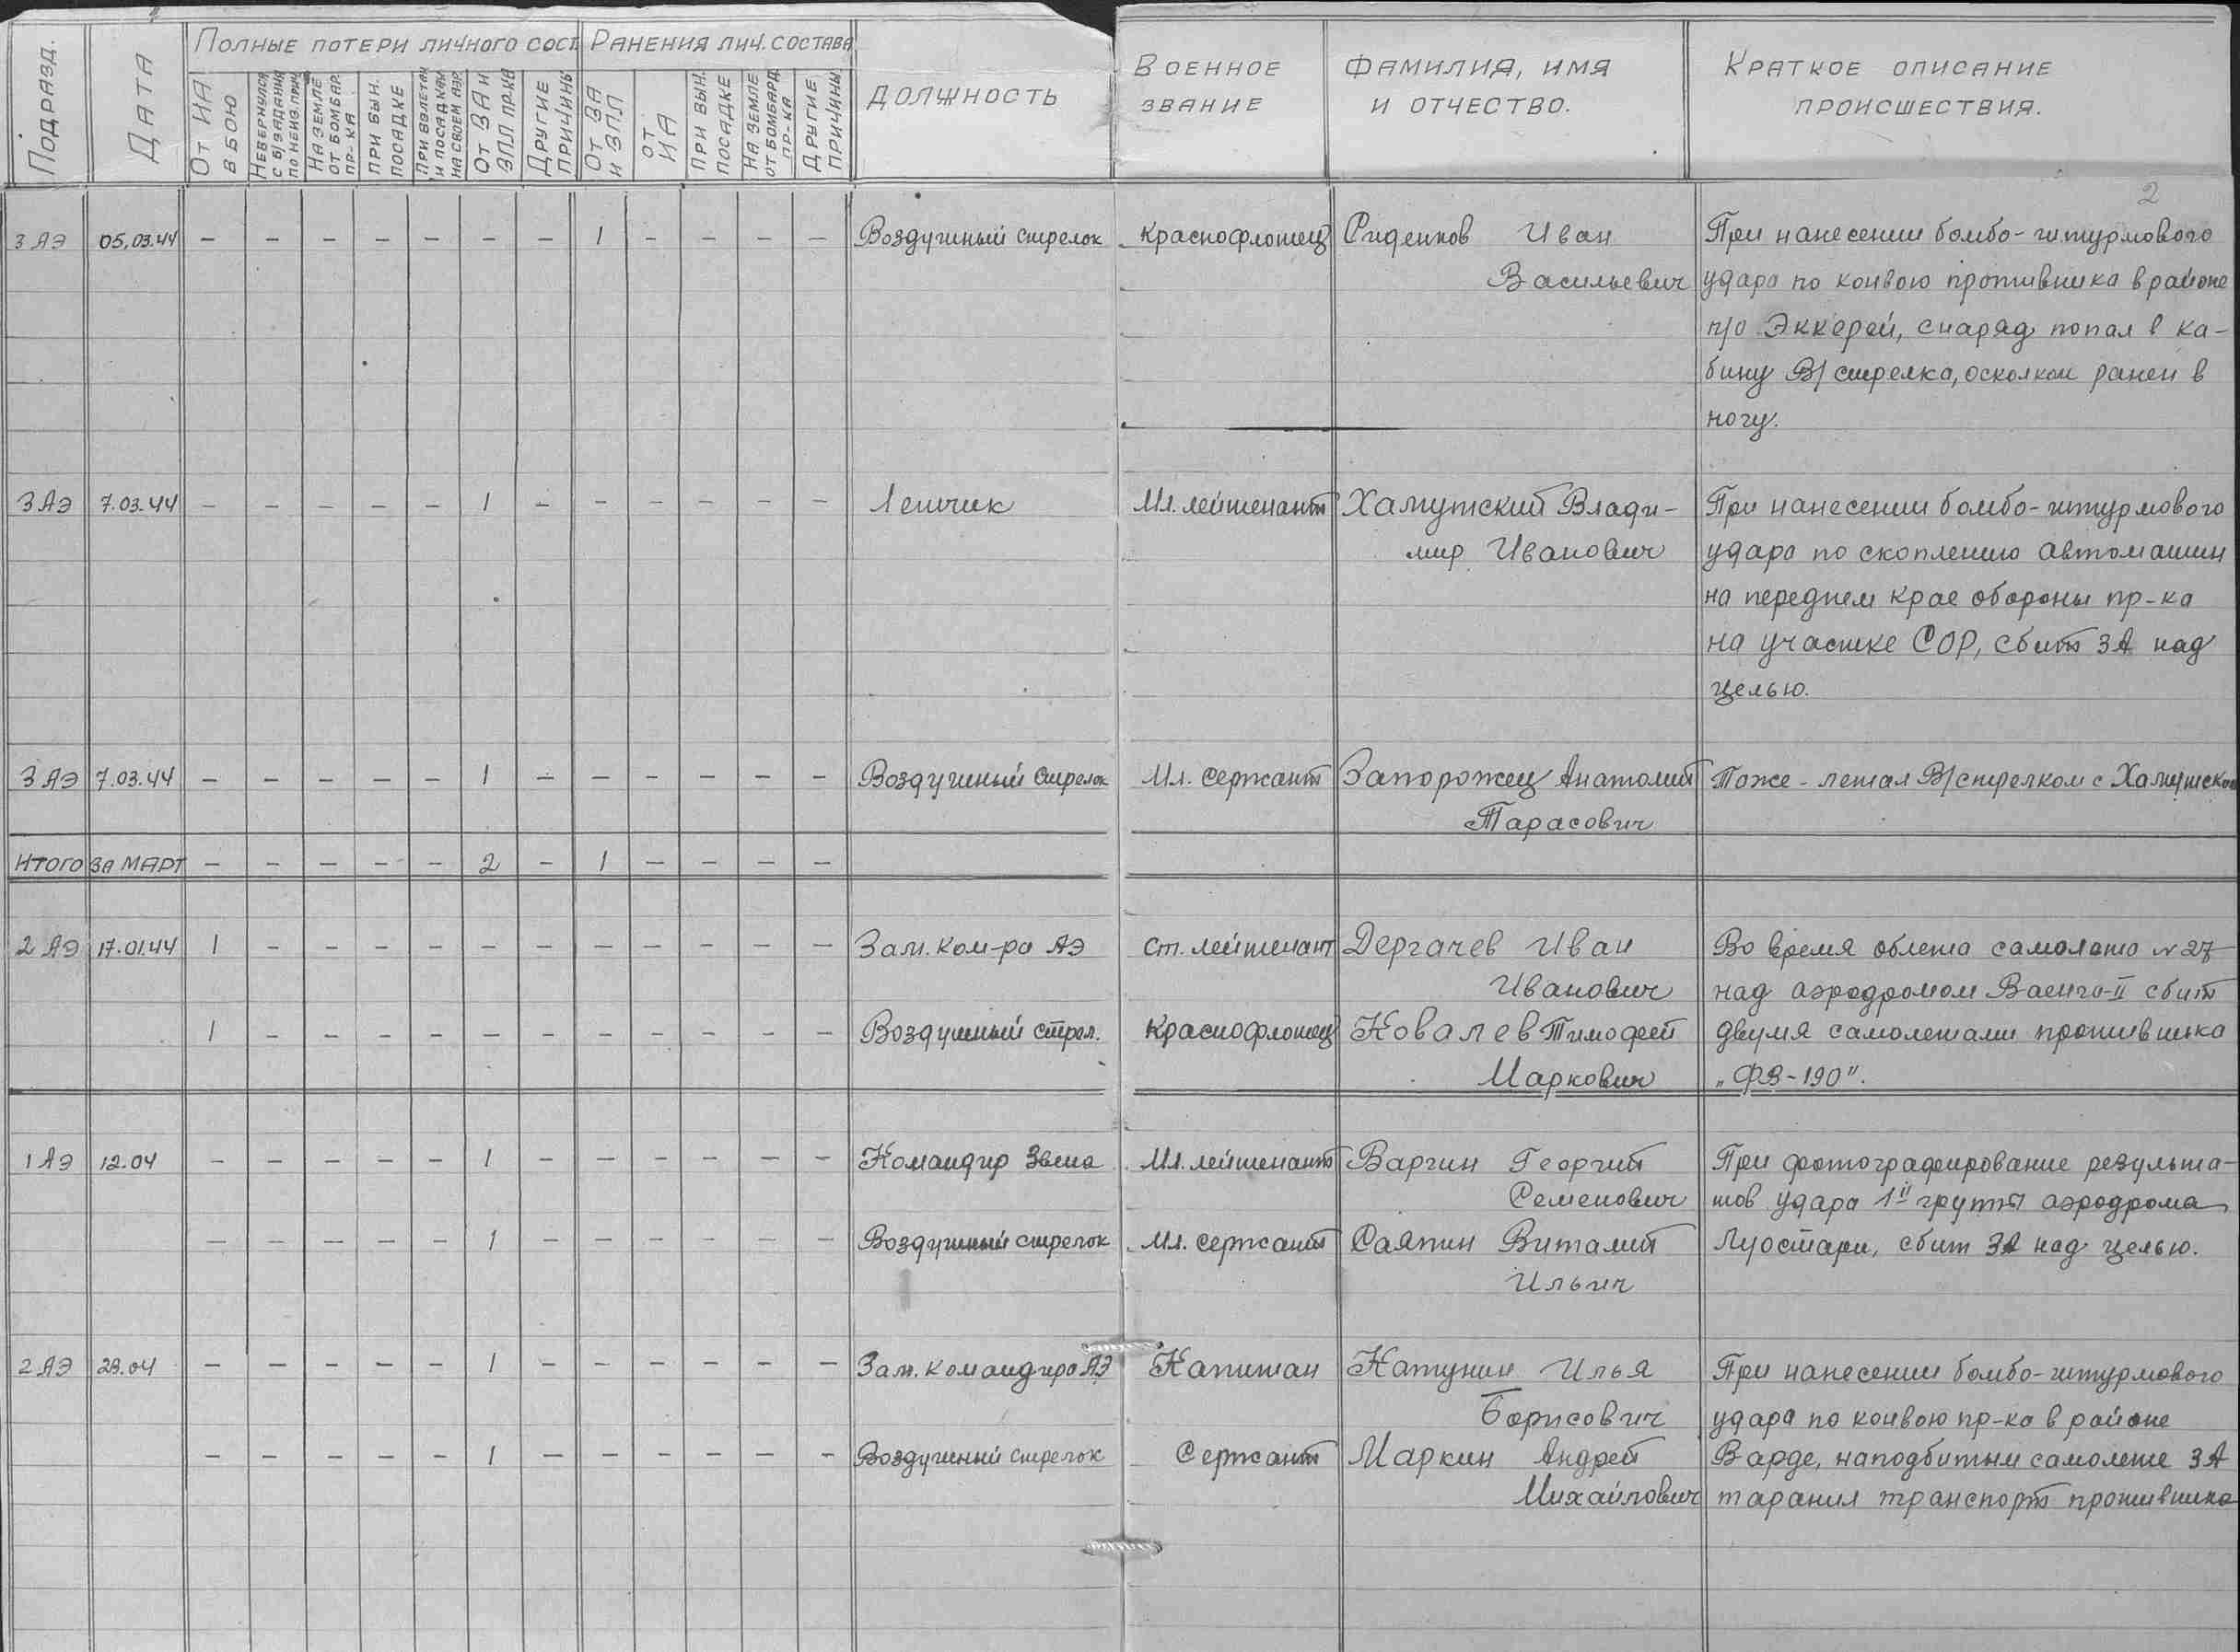 Подразд.
Дата
Полные потери личного сост
От ИА в бою
Невернулся с б/задания по неизв. прич.
На земле от бомбар. пр-ка
При вын. посадке
При взлетах и посадках на своем аэр.
От ЗА и ЗПЛ пр-ка
Другие причины
Ранения лич. состава
От ЗА и ЗПЛ
От ИА
При вын. посадке
На земле от бомбард. пр-ка
Другие причины
Должность
Военное звание
Фамилия, имя и отчество.
Краткое описание происшествия.
2
3 АЭ 05.03.44 – – – – – – – 1 – – – – Воздушный стрелок Краснофлотец Сиденков Иван При нанесении бомбо-штурмового
Васильевич удара по конвою противника в районе
п/о Эккерей, снаряд попал в ка-
бину В/стрелка, осколком ранен в
ногу.
3 АЭ 7.03.44 – – – – – 1 – – – – – – Летчик Мл. лейтенант Хамутский Влади- При нанесении бомбо-штурмового
мир Иванович удара по скоплению автомашин
на переднем крае обороны пр-ка
на участке СОР, сбит ЗА над
целью.
3 АЭ 7.03.44 – – – – – 1 – – – – – – Воздушный стрелок Мл. сержант Запорожец Анатолий Тоже - летал В/стрелком с Хамутском
Тарасович
Итого за март – – – – – 2 – 1 – – – –
2 АЭ 17.01.44 1 – – – – – – – – – – – Зам. ком-ра АЭ Ст. лейтенант Дергачев Иван Во время облета самолета №27
Иванович над аэродромом Ваенга-II сбит
1 – – – – – – – – – – – Воздушный стрел. Краснофлотец Ковалев Тимофей двумя самолетами противника
Маркович „ФВ-190".
1 АЭ 12.04 – – – – – 1 – – – – – – Командир Звена Мл. лейтенант Варгин Георгий При фотографирование результа-
Семенович тов удара 1й группы аэродрома
– – – – – 1 – – – – – – Воздушный стрелок Мл. сержант Саяпин Виталий Луостари, сбит ЗА над целью.
Ильич
2 АЭ 28.04 – – – – – 1 – – – – – – Зам. командира АЭ Капитан Катунин Илья При нанесении бомбо-штурмового
Борисович удара по конвою пр-ка в районе
– – – – – 1 – – – – – – Воздушный стрелок Сержант Маркин Андрей Варде, наподбитым самолете ЗА
Михайлович таранил транспорт противника